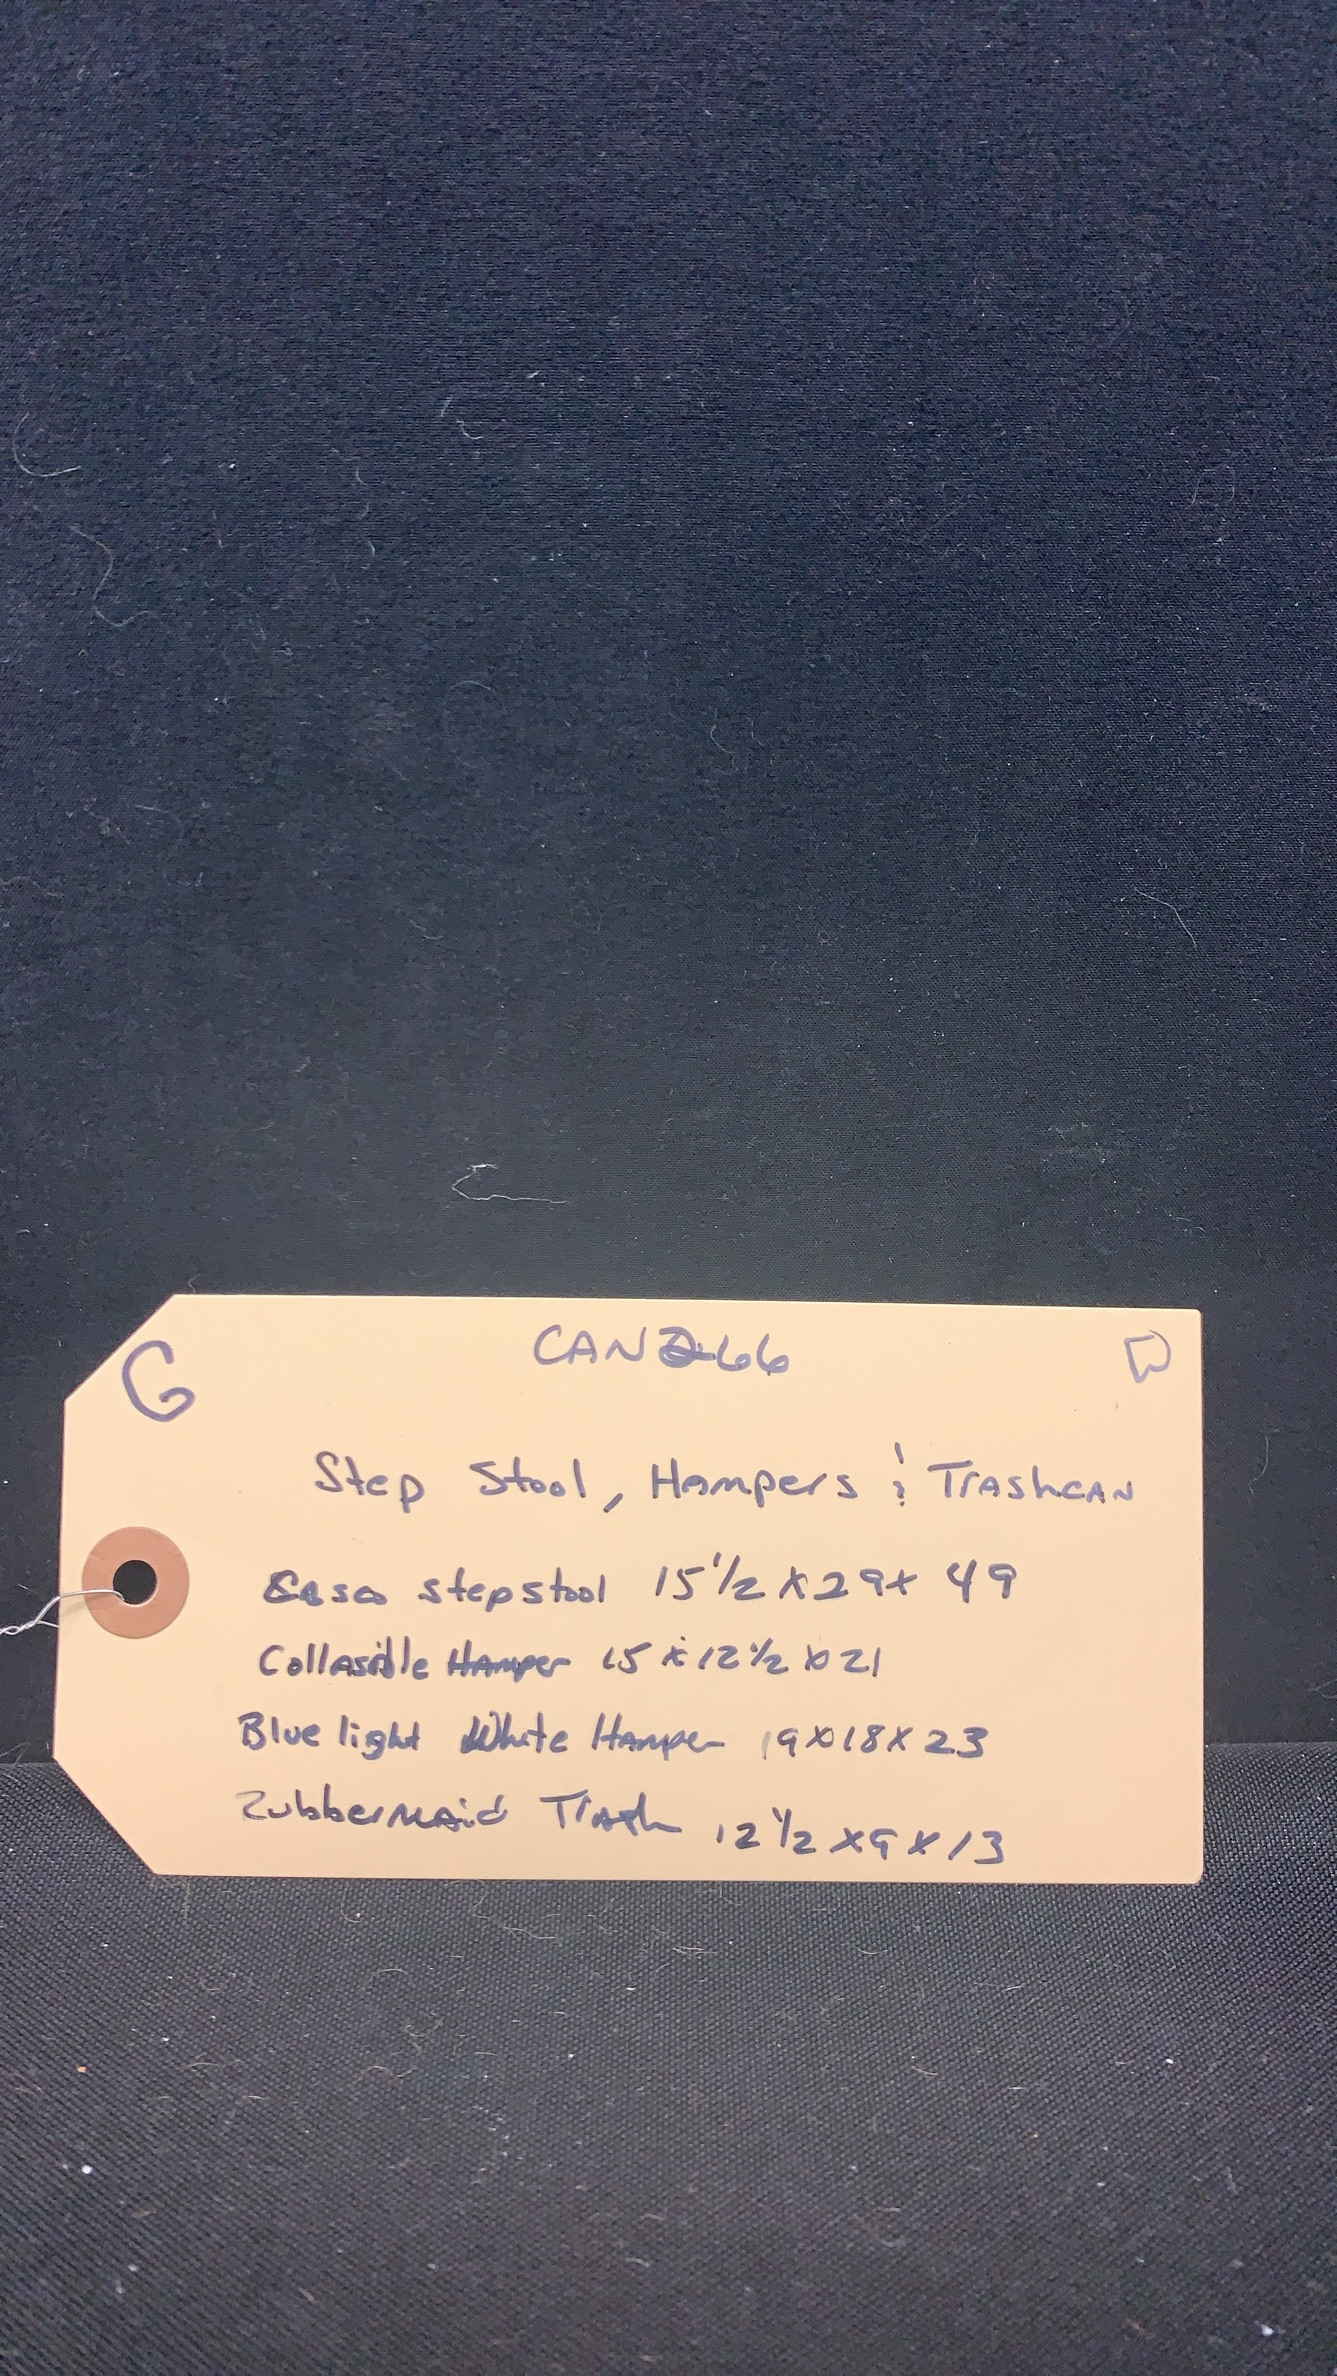 G CAN266 D
Step Stool, Hampers & TrashCAN
stepstool 15 1/2 X 29 + 49
Collasible Hamper 15 x 12 1/2 x 21
Blue light White Hamper 19 x 18 x 23
Rubbermaid Trash 12 1/2 x 9 x 13